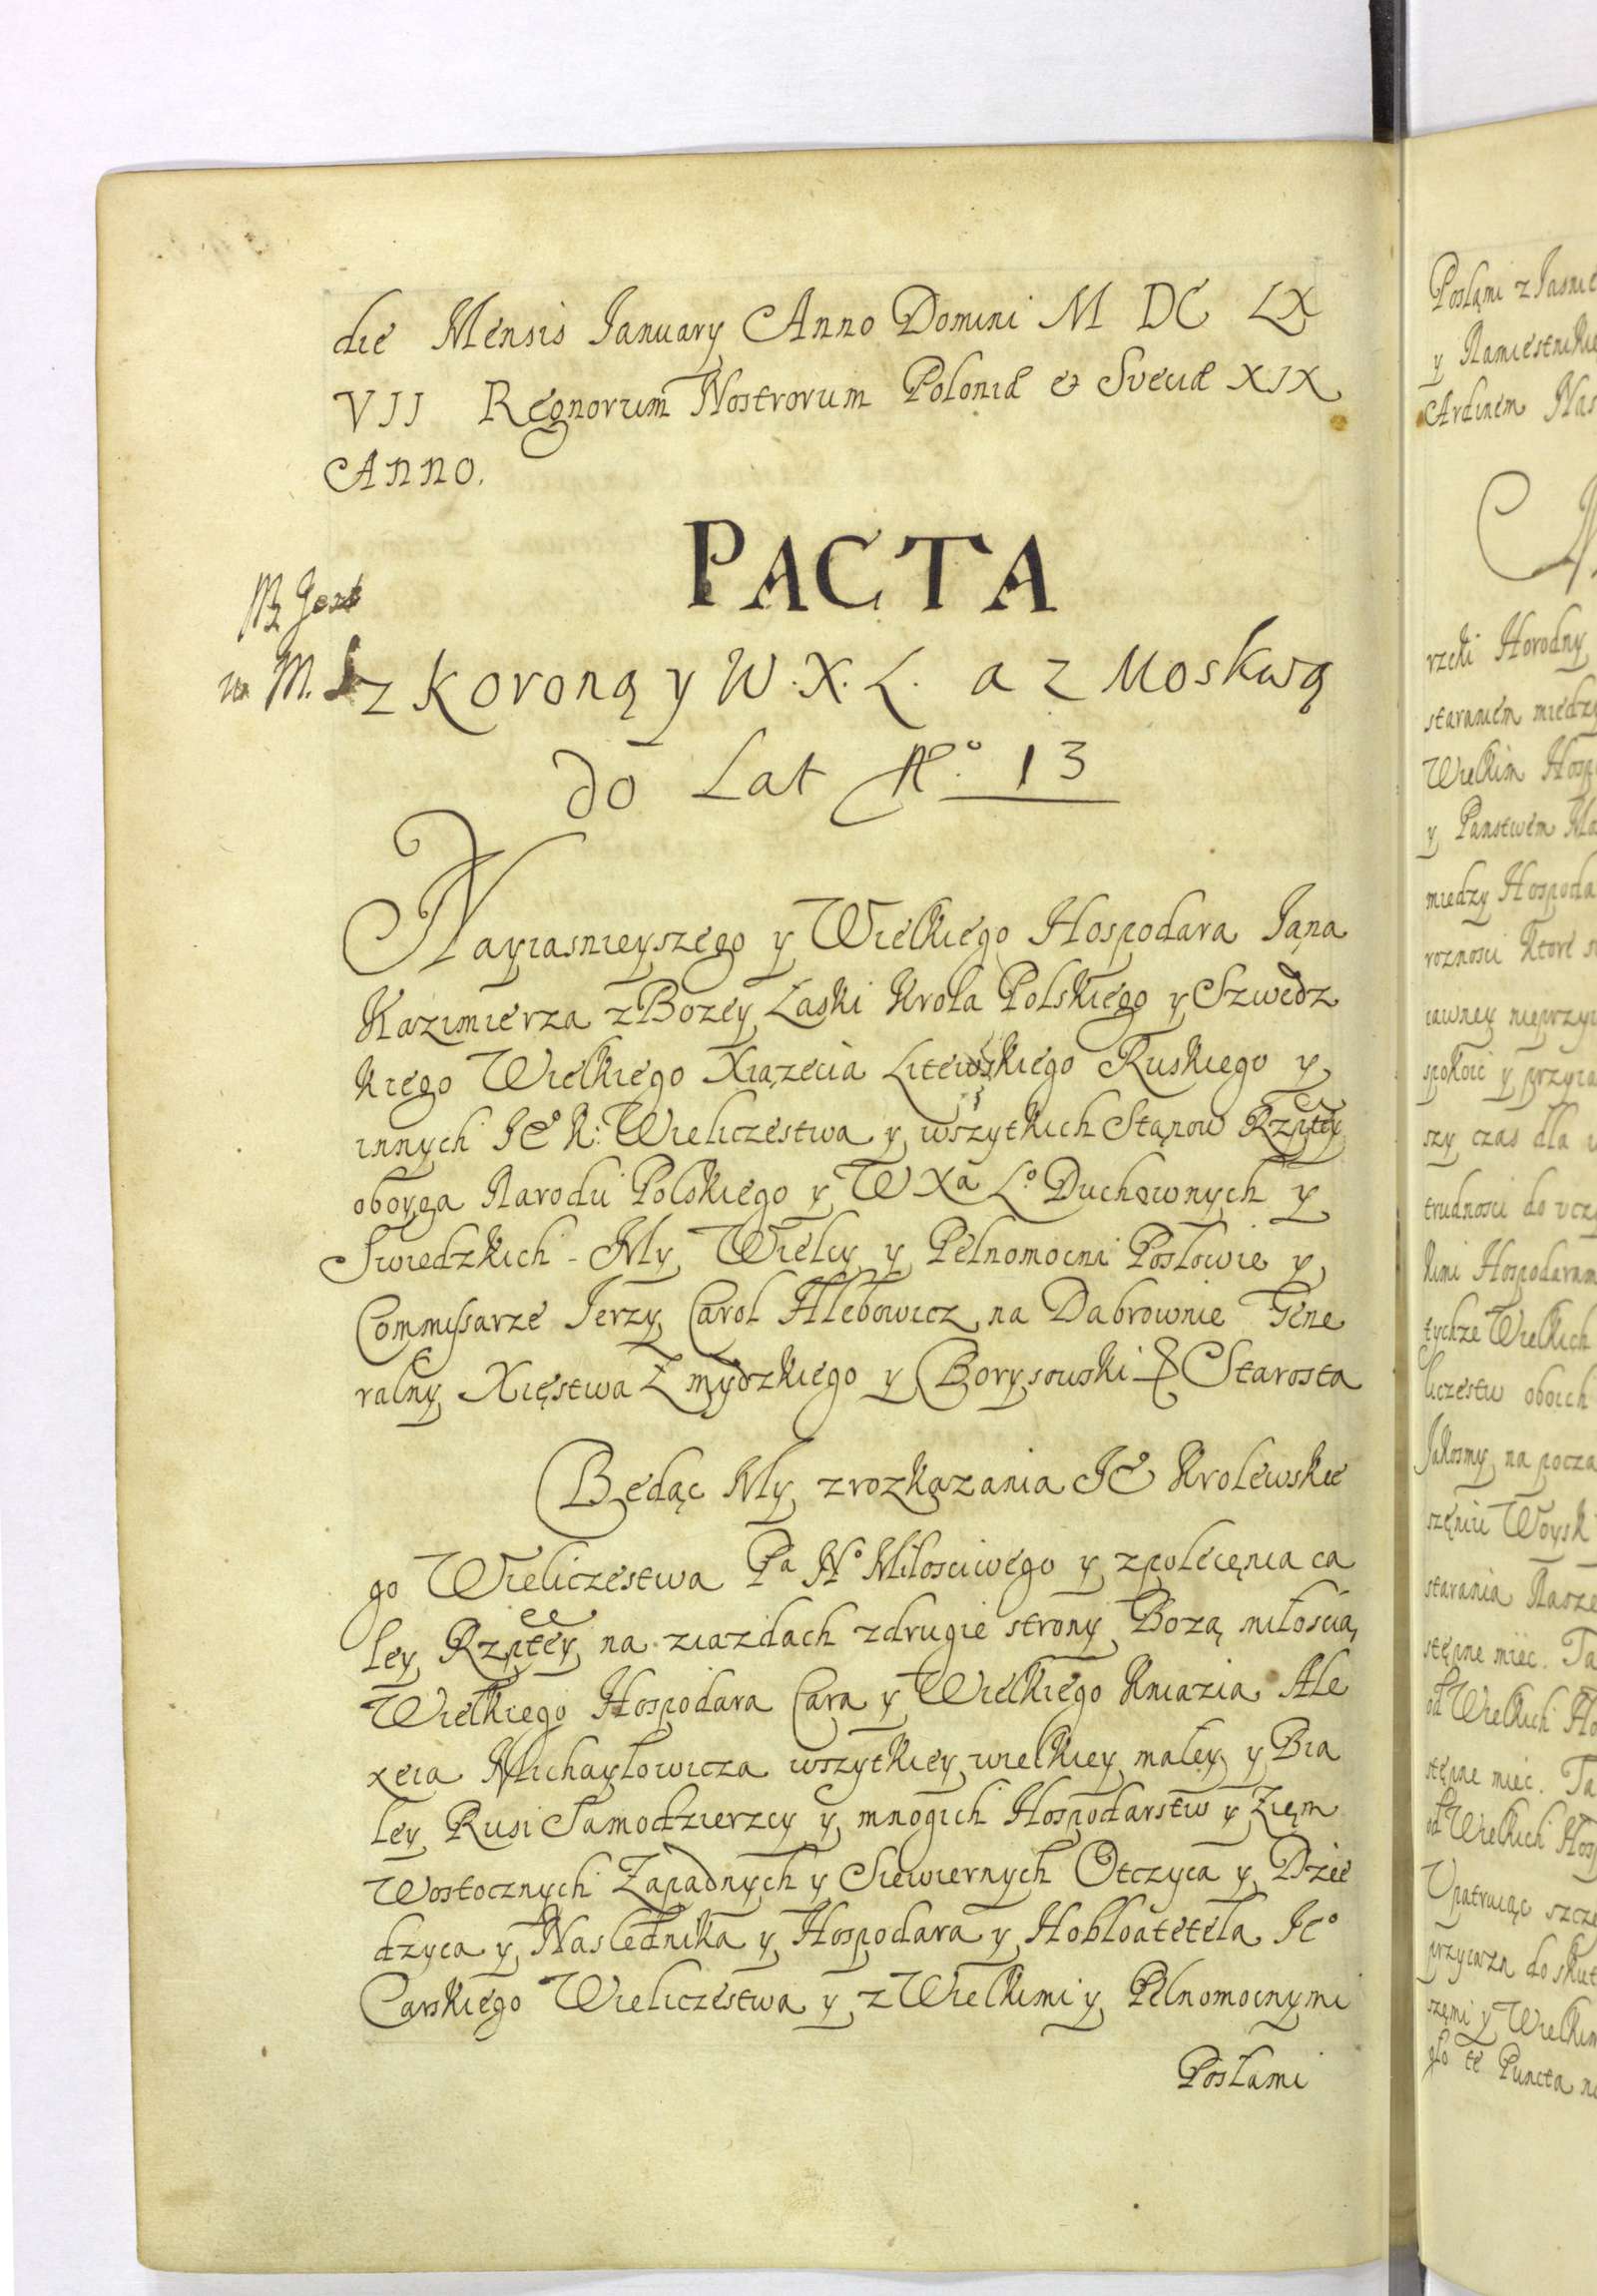 die Mensis January Anno Domini M DC LX
VII Regnorum Nostrorum Poloniæ et Sveciæ XIX
Anno.
PACTA
z Koroną y W.X.L. a z Moskwą
do Lat No. 13
Nayiasnieyszego y Wielkiego Hospodara Jana
Kazimierza z Bozey Łaski Krola Polskiego y Szwedz
kiego Wielkiego Xiązecia Litewskiego Ruskiego y
innych JEo K: Wieliczestwa y wszytkich Stanow Rzptey
oboyga Narodu Polskiego y W Xa Lo Duchownych y
Swiedzkich - My Wielcy y Pełnomocni Posłowie y
Commissarze Jerzy Carol Hlebowicz na Dabrownie Gene
ralny Xięstwa Zmydzkiego y Borysowski & Starosta
Będąc My z rozkazania JE Krolewskie
go Wieliczestwa Pa No Miłosciwego y z polecęnia ca
łey Rzptey na ziazdach z drugie strony Bozą miłoscią
Wielkiego Hospodara Cara y Wielkiego Kniazia Ale
xeia Michayłowicza wszytkiey wielkiey małey y Bia
łey Rusi Samodzierzcy y mnogich Hospodarstw y Zięm
Wostocznych Zapadnych y Siewiernych Otczyca y Dzie
dzyca y Naslednika y Hospodara y Hobloatetela JEo
Carskiego Wieliczestwa y z Wielkimi y Pełnomocnymi
Posłami
Posłami z Jasnie
y Namiestnikie
Ardinem Nas
rzcki Horodny
staraniem miedzy
Wielkim Hosp
y Panstwem Mo
miedzy Hospoda
roznosci ktore
iawney nieprzyi
spokoic y przyia
szy czas dla
trudnosci do vcz
kimi Hospodaram
tychze Wielkich
liczestw oboich
Jakosmy na pocza
szęniu Woysk
starania Nasze
stępne miec. Ta
od Wielkich Ho
stępne miec. Ta
od Wielkich Hosp
Upatruiąc szcze
przyiazn do skut
szęmi y Wielkim
te Puncta na